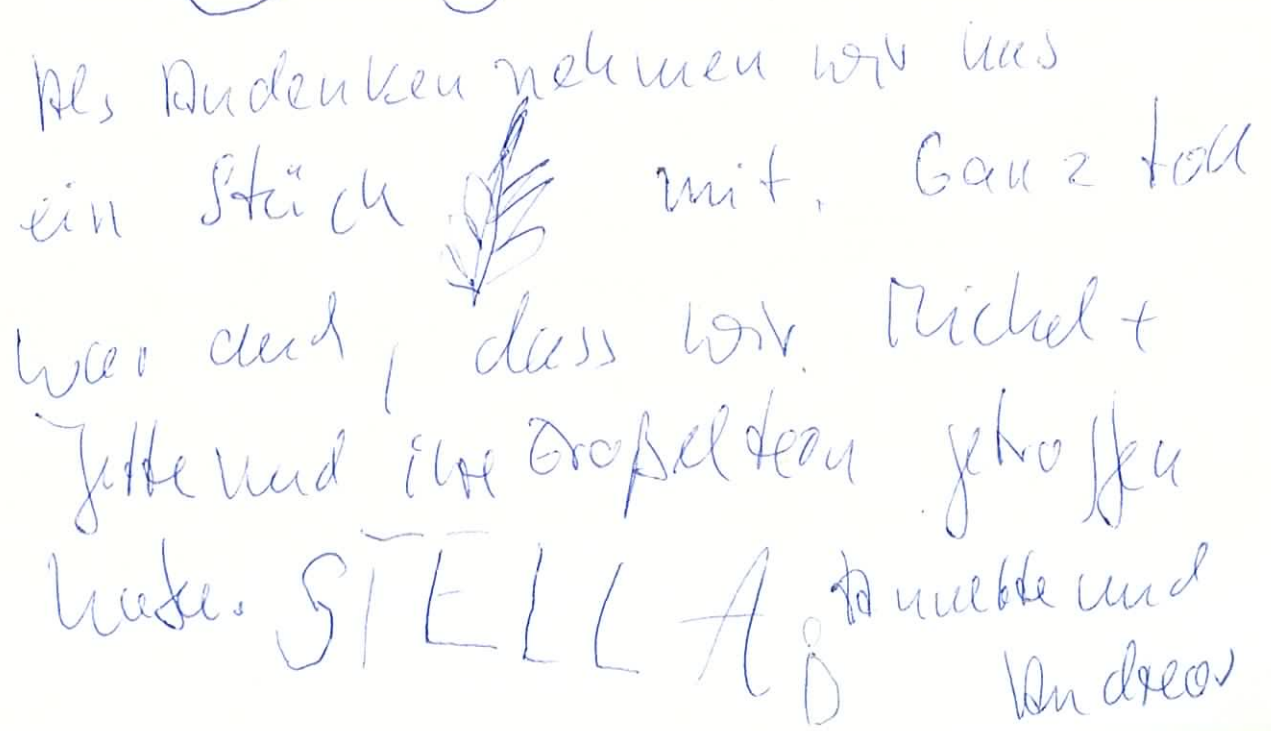 Als Andenken nehmen wir uns
ein Stück mit. Ganz toll
war auch, dass wir Michel +
Jette und ihre Großeltern getroffen
STELLA, Annette und
Andreas